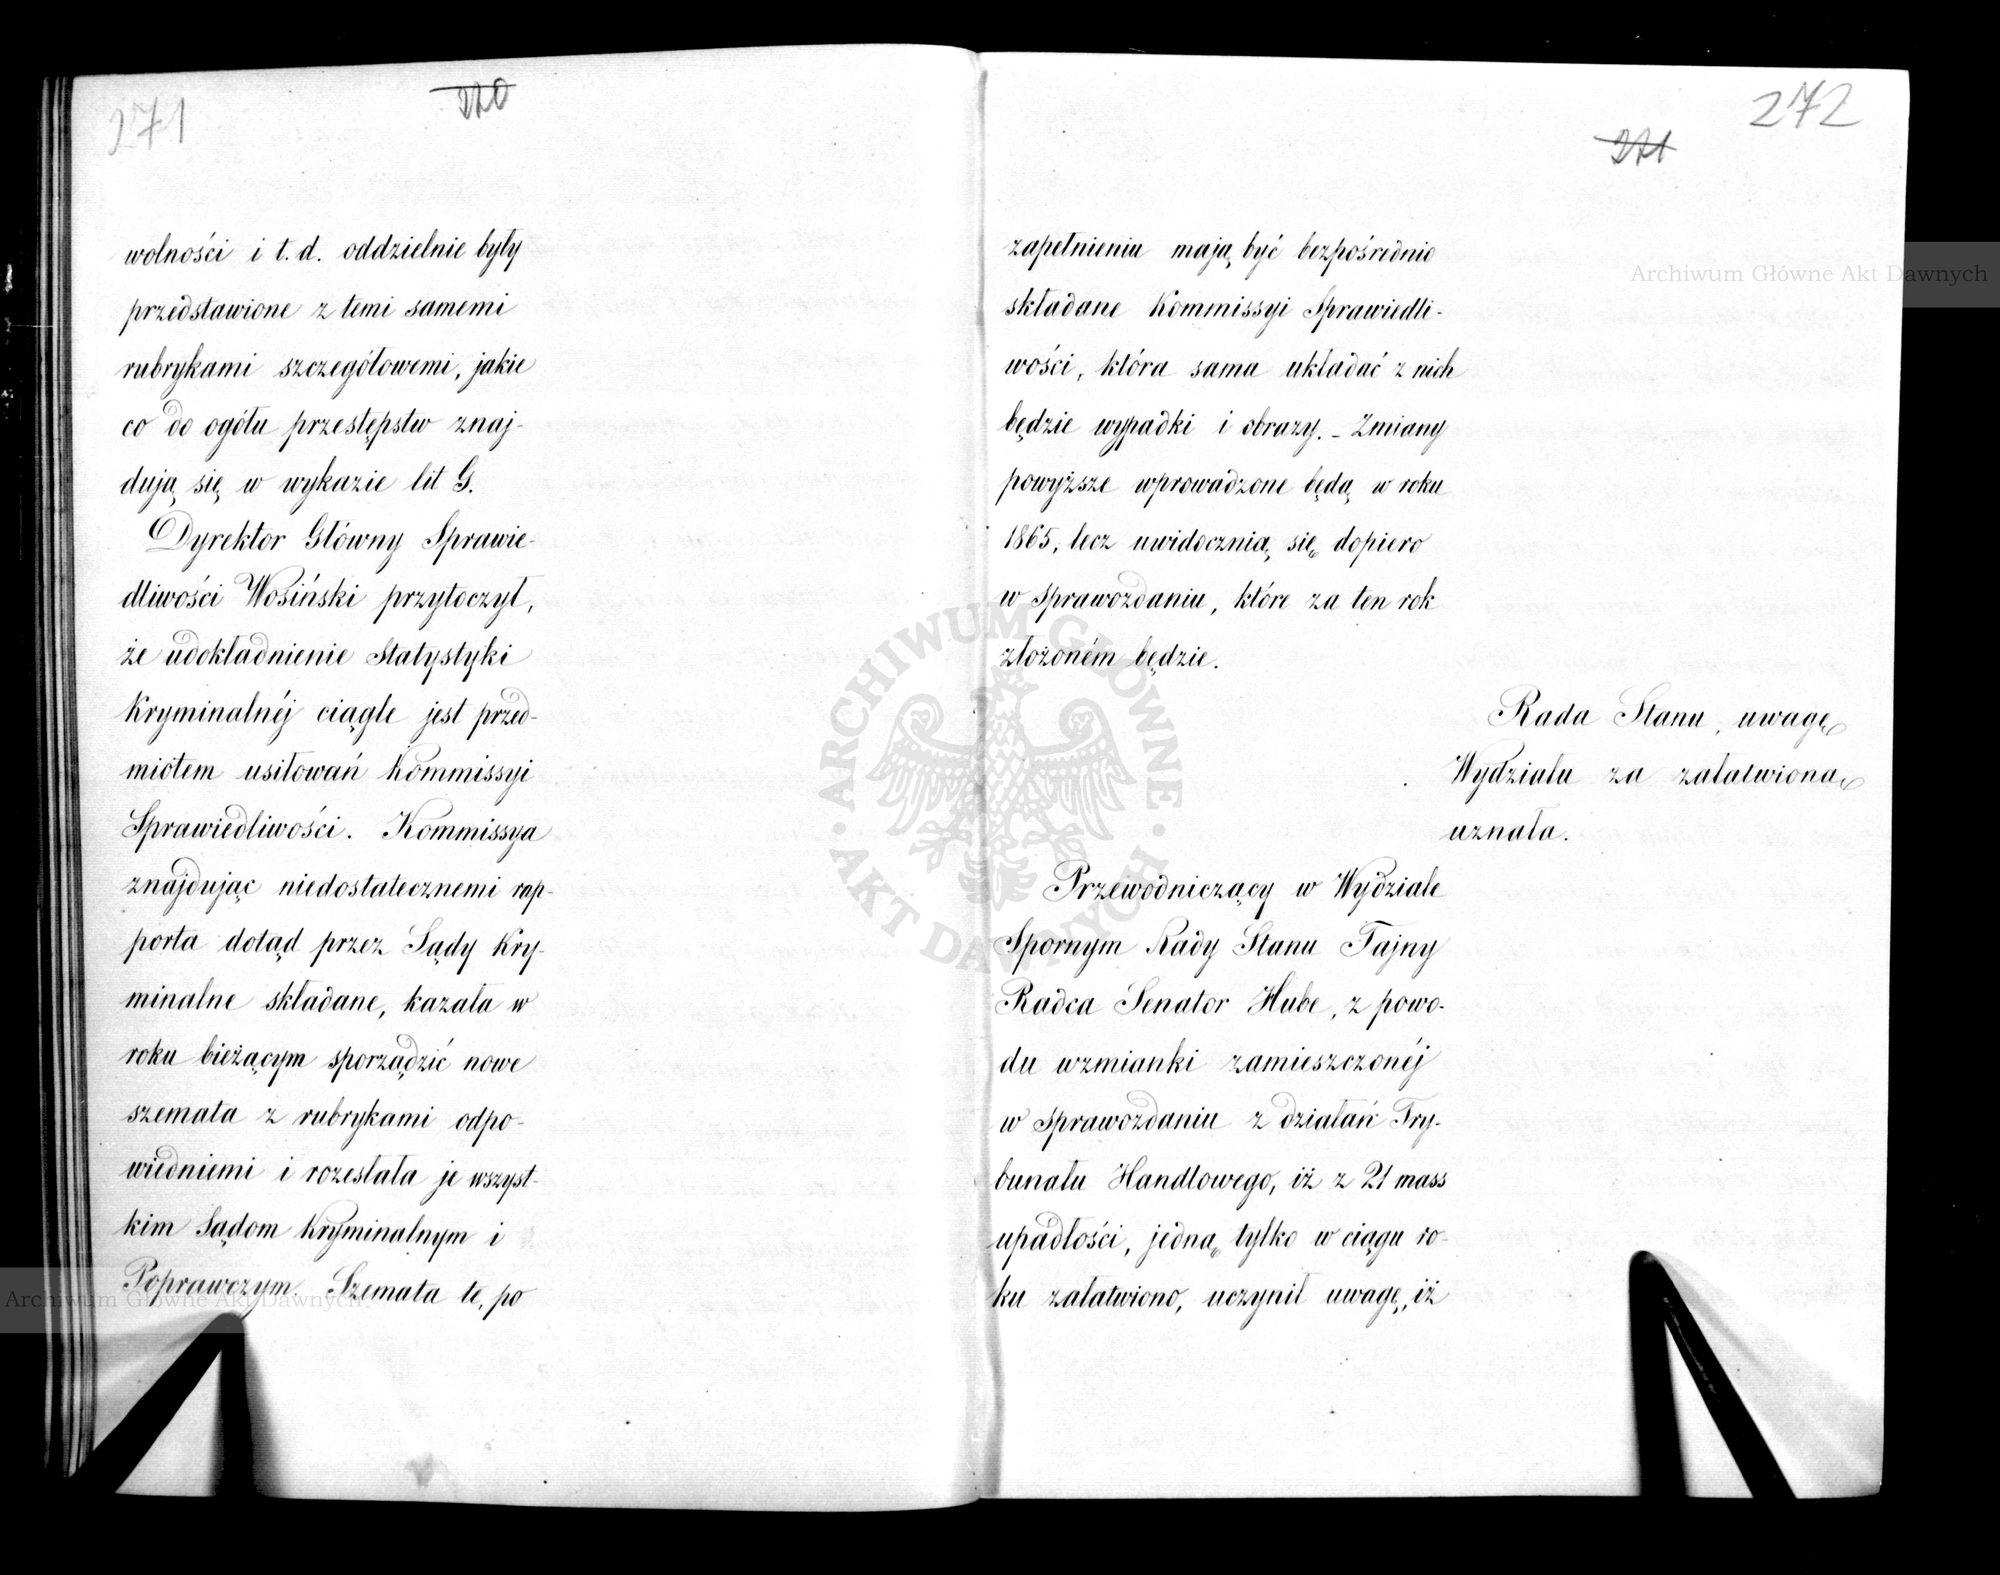 271
220
wolności i t. d. oddzielnie były
przedstawione z temi samemi
rubrykami szczegółowemi, jakie
co do ogółu przestępstw znaj-
dują się w wykazie lit G.
Dyrektor Główny Sprawie-
dliwości Wosiński przytoczył,
że udokładnienie Statystyki
Kryminalnéj ciągle jest przed-
miotem usiłowań Kommissyi
Sprawiedliwości. Kommissya
znajdując niedostatecznemi rap-
porta dotąd przez Sądy Kry-
minalne składane, kazała w
roku bieżącym sporządzić nowe
szemata z rubrykami odpo-
wiedniemi i rozesłała je wszyst-
kim Sądom Kryminalnym i
Poprawczym. Szemata te, po
272
271
zapełnieniu mają być bezpośrednio
składane Kommissyi Sprawiedli-
wości, która sama układać z nich
będzie wypadki i obrazy. – Zmiany
powyższe wprowadzone będą w roku
1865, lecz uwidocznią się dopiero
w sprawozdaniu, które za ten rok
złożoném będzie.
Rada Stanu, uwagę
Wydziału za załatwioną
uznała.
Przewodniczący w Wydziale
Spornym Rady Stanu Tajny
Radca Senator Hube, z powo-
du wzmianki zamieszczonéj
w sprawozdaniu z działań Try-
bunału Handlowego, iż z 21 mass
upadłości, jedną tylko w ciągu ro-
ku załatwiono, uczynił uwagę, iż
Archiwum Główne Akt Dawnych
Archiwum Główne Akt Dawnych
ARCHIWUM GŁÓWNE
AKT DAWNYCH